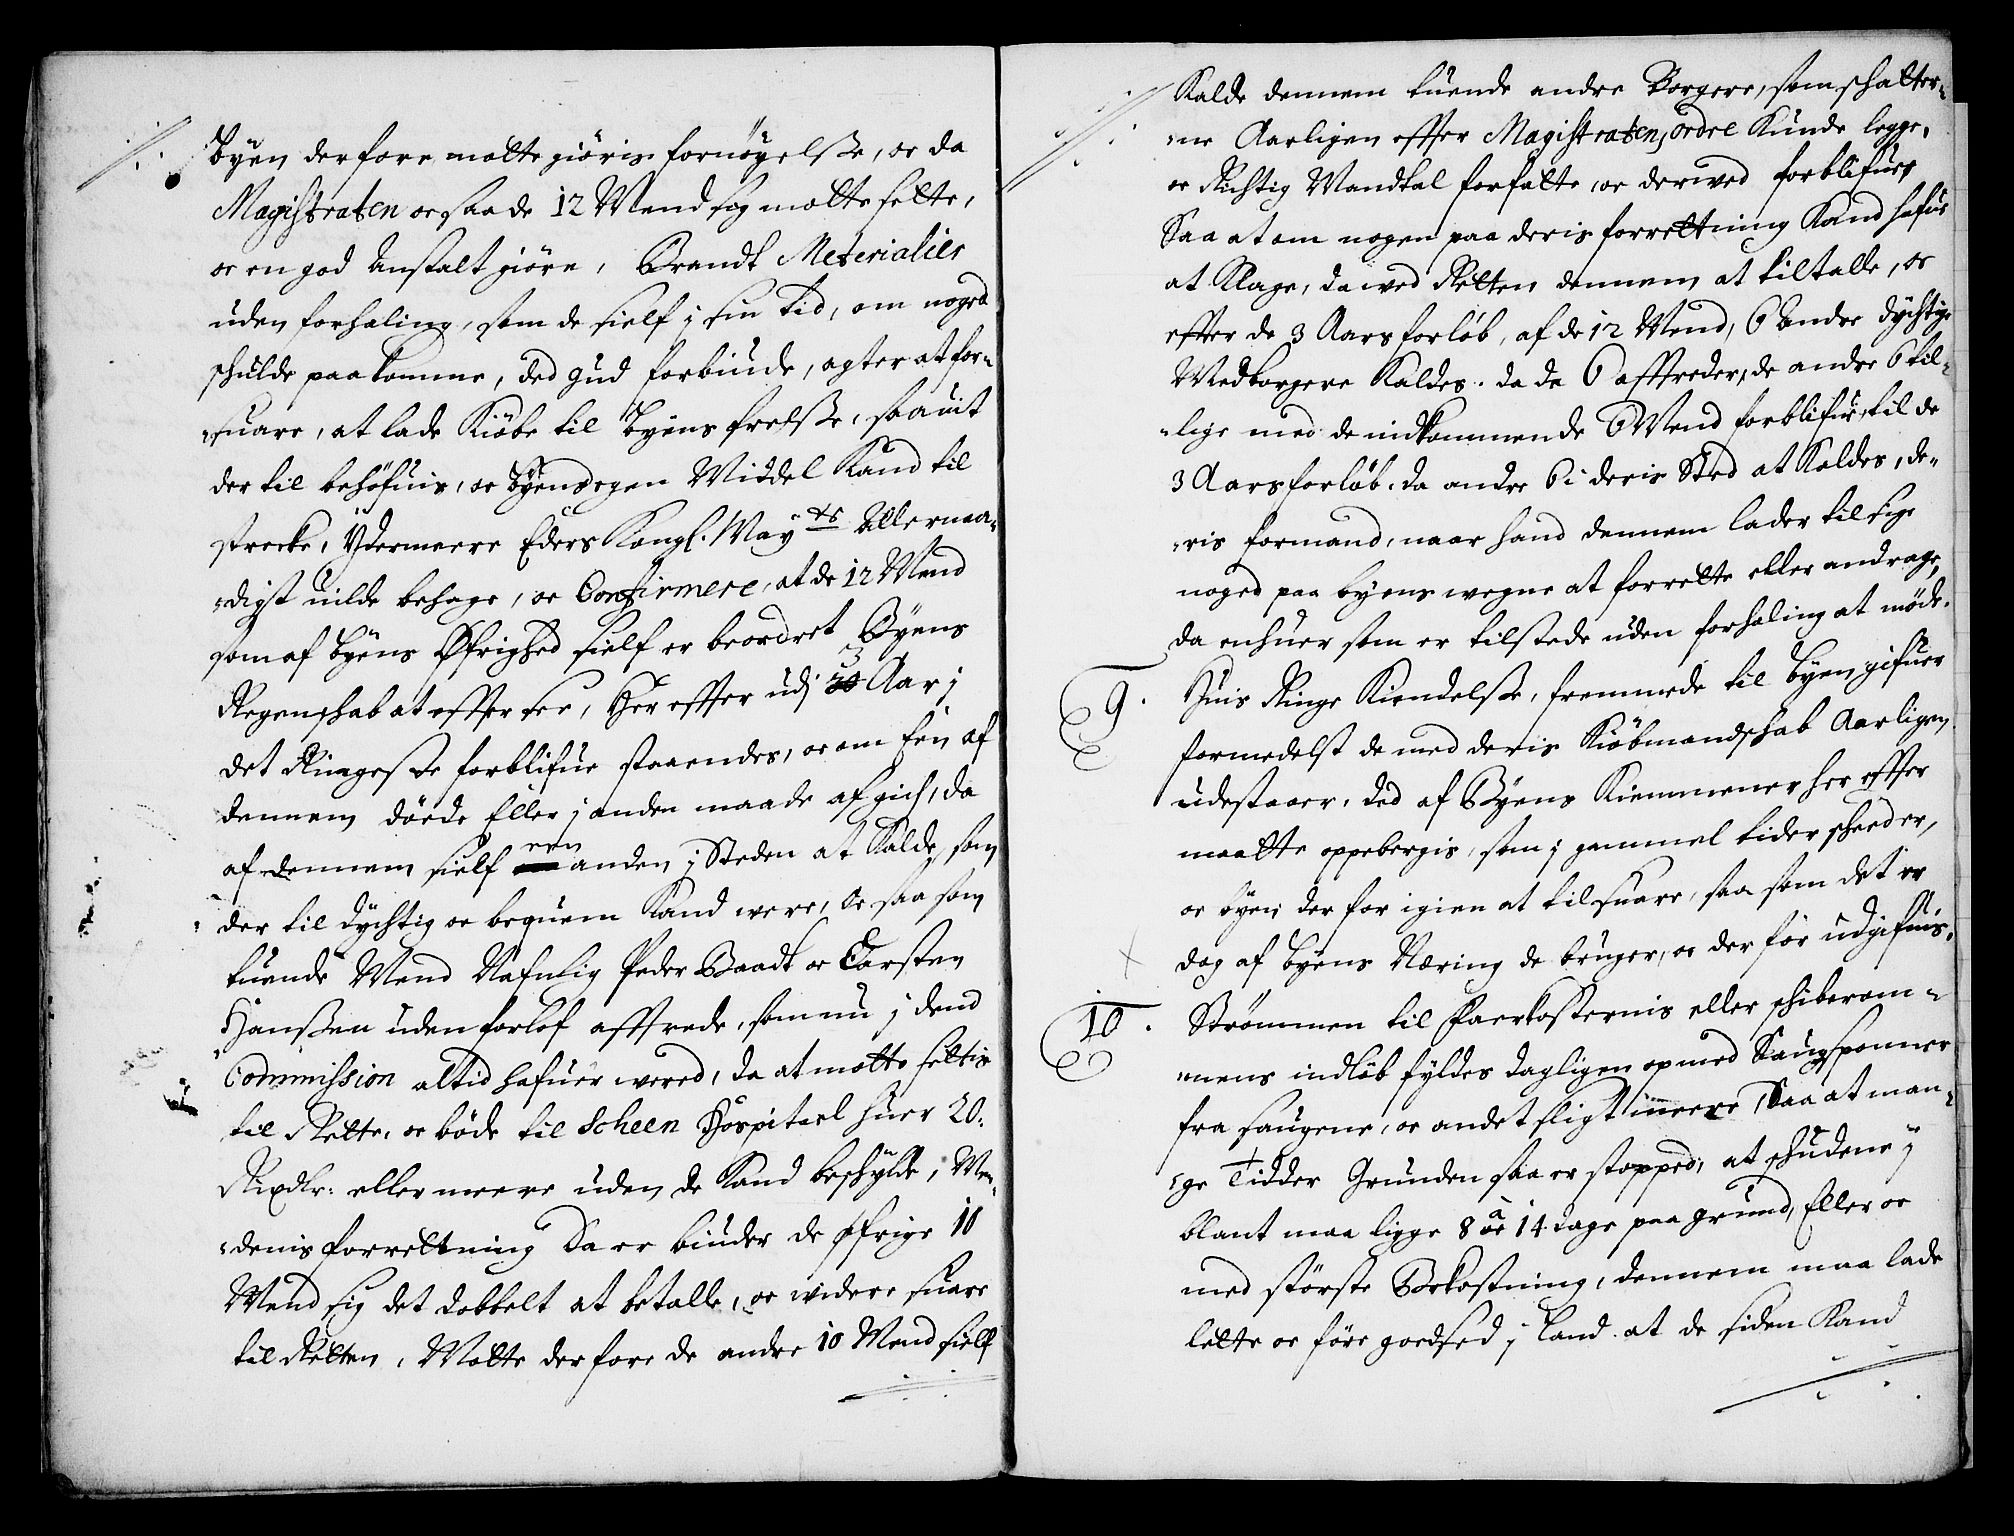 Byen derfore motte giøris fornøyelsse, oc da
Magistraten oc saa de 12 Mend sig motte sette,
oc en god Anstalt giøre, Brandt Meterialier
uden forhaling, som de sielf i sin tid, om noged
schulde paakomme, ded gud forbiude, agter at for-
suare, at lade Kiøbe til Byens frelsse, saauit
der til behøfuis, oc Byens egen Middel Kand til
strecke, Ydermeere Eders Kongl. May:ts Allernaa-
digst uilde behage, oc Confirmere, at de 12 Mend
som af Byens Øfrighed sielf er beordret Byens
Regenschab at effter see, Her effter udj 3 Aar j
det Ringeste forblifue staaendes, oc om Een af
dennem døede Eller j anden maade afgich, da
af dennem sielf een anden j Steden at Kalde, som
der til dychtig oc bequem Kand were, Oc saa som
tuende Mend Nafnlig Peder Baadt oc Carsten
Hanssen uden forlof afftrede, som nu j dend
Commission altid hafuer wered, da at motte settis
til Rette, oc bøde til Scheen Hospitael huer 20:
Rixdlr: eller meere uden de Kand beschylde, Men-
denis forrettning Da er biuder de øfrige 10
Mend sig det dobbelt at betalle, oc widere suare
til Retten, Motte derfore de andre 10 Mend sielf
Kalde dennem tuende andre Borgere, som schatter-
ne Aarligen effter Magistratens ordre Kunde legge,
oc Richtig Mandtal forfatte, oc derwed forblifue,
Saa at om nogen paa deris forrettning Kand hafue
at Klage, da wed Retten dennem at tiltalle, oc
effter de 3 Aars forløb, af de 12 Mend, 6 Andre dychtige
Medborgere Kaldes. da de 6 afftreder, de andre 6 til-
lige med de indkommende 6 Mend forblifue, til de
3 Aars forløb. da andre 6 i deris Sted at Kaldes, de-
ris formand, naar hand dennem lader tilsige
noged paa byens wegne at forrette eller andrage,
da enhuer som er tilstede uden forhaling at møde.
9. Huis Ringe Kiendelsse, fremmede til Byen gifuer
formedelst de med deris Kiøbmandschab Aarligen
udestaaer, ded af Byens Kiemmener her effter
maatte oppebergis, som j gammel tider scheed er,
oc byen der for igien at tilsuare, saa som det er
dog af Byens Næring de bruger, oc der for udgifuis.
10. Strømmen til Paerkosternis eller schiberom-
mens indløb fyldes dagligen op med Saugsponner
fra saugene, oc andet sligt meere, Saa at man-
ge Tidder Grunden saa er stopped, at schudene j
blant maa ligge 8 a 14 dage paa grund, Eller oc
med største Bekostning, dennem maa lade
lette oc føre goedsed j Land. at de siden Kand